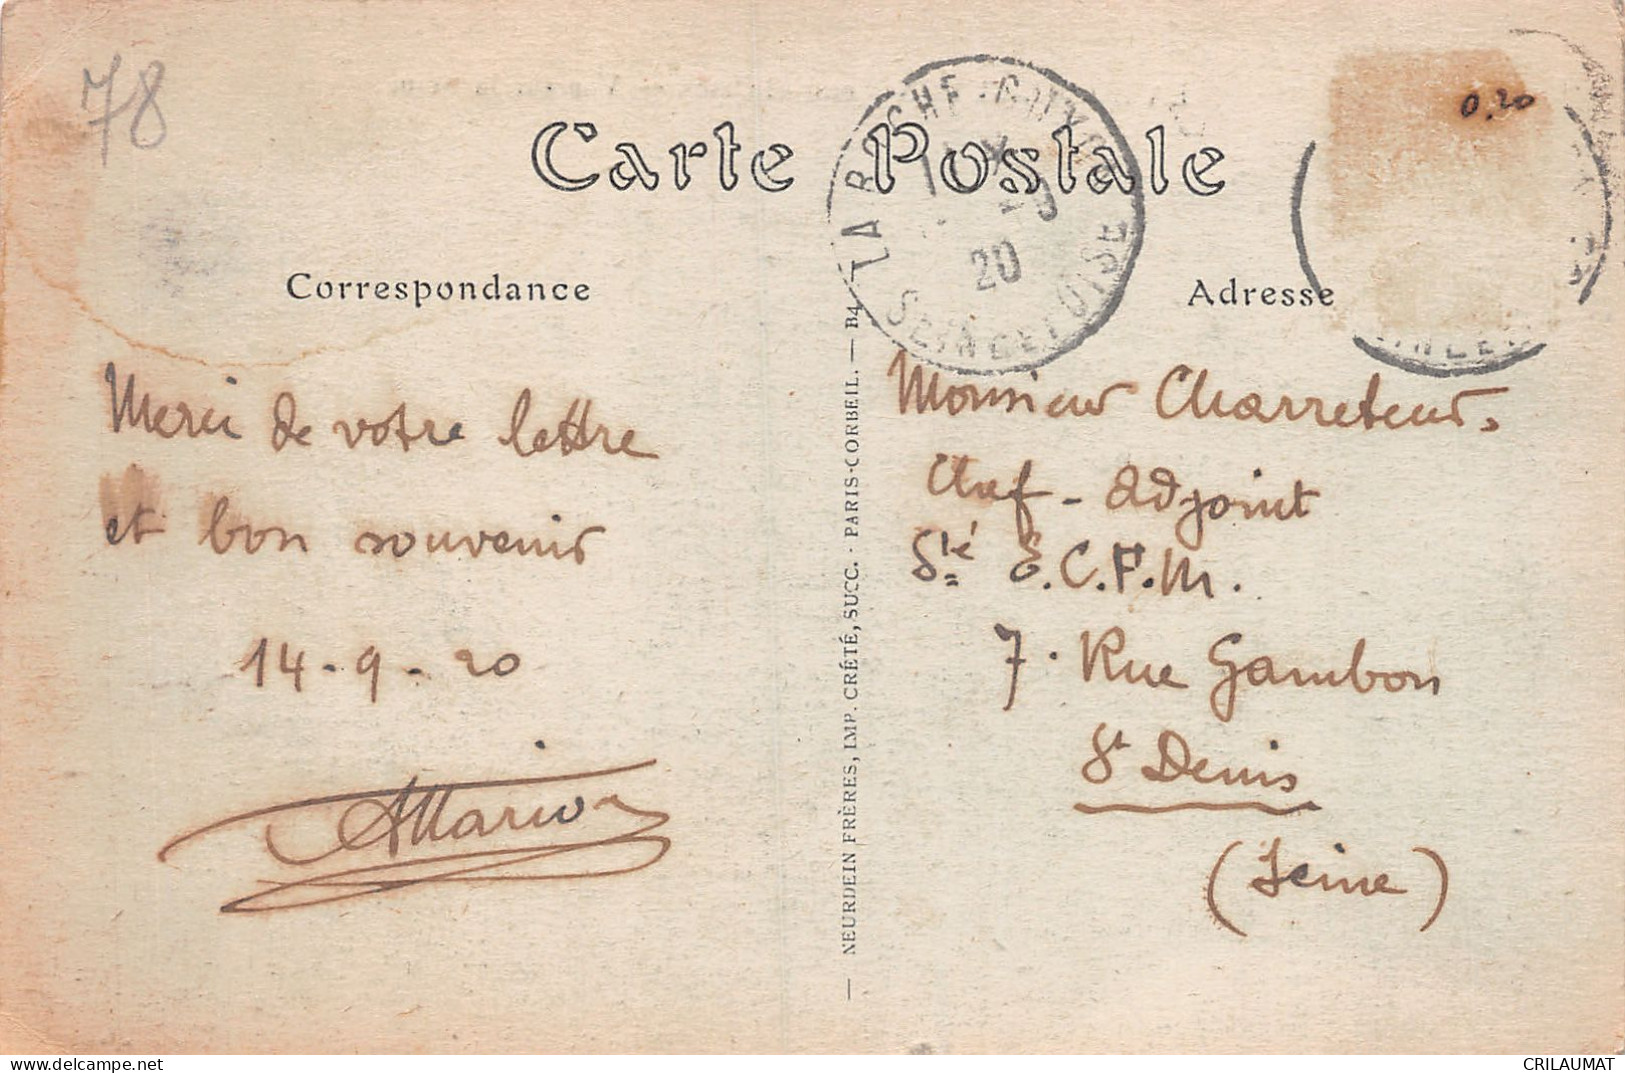 78
Carte Postale
0.20
20
SEINE ET OISE
Correspondance
Adresse
Merci de votre lettre
et bon souvenir
14-9-20
NEURDEIN FRÈRES, IMP. CRÉTÉ, SUCC. · PARIS-CORBEIL. — B4
Monsieur Charreteur.
Chef-adjoint
Sté E.C.F.M.
7. Rue Gambon
St Denis
(Seine)
delcampe.net
CRILAUMAT